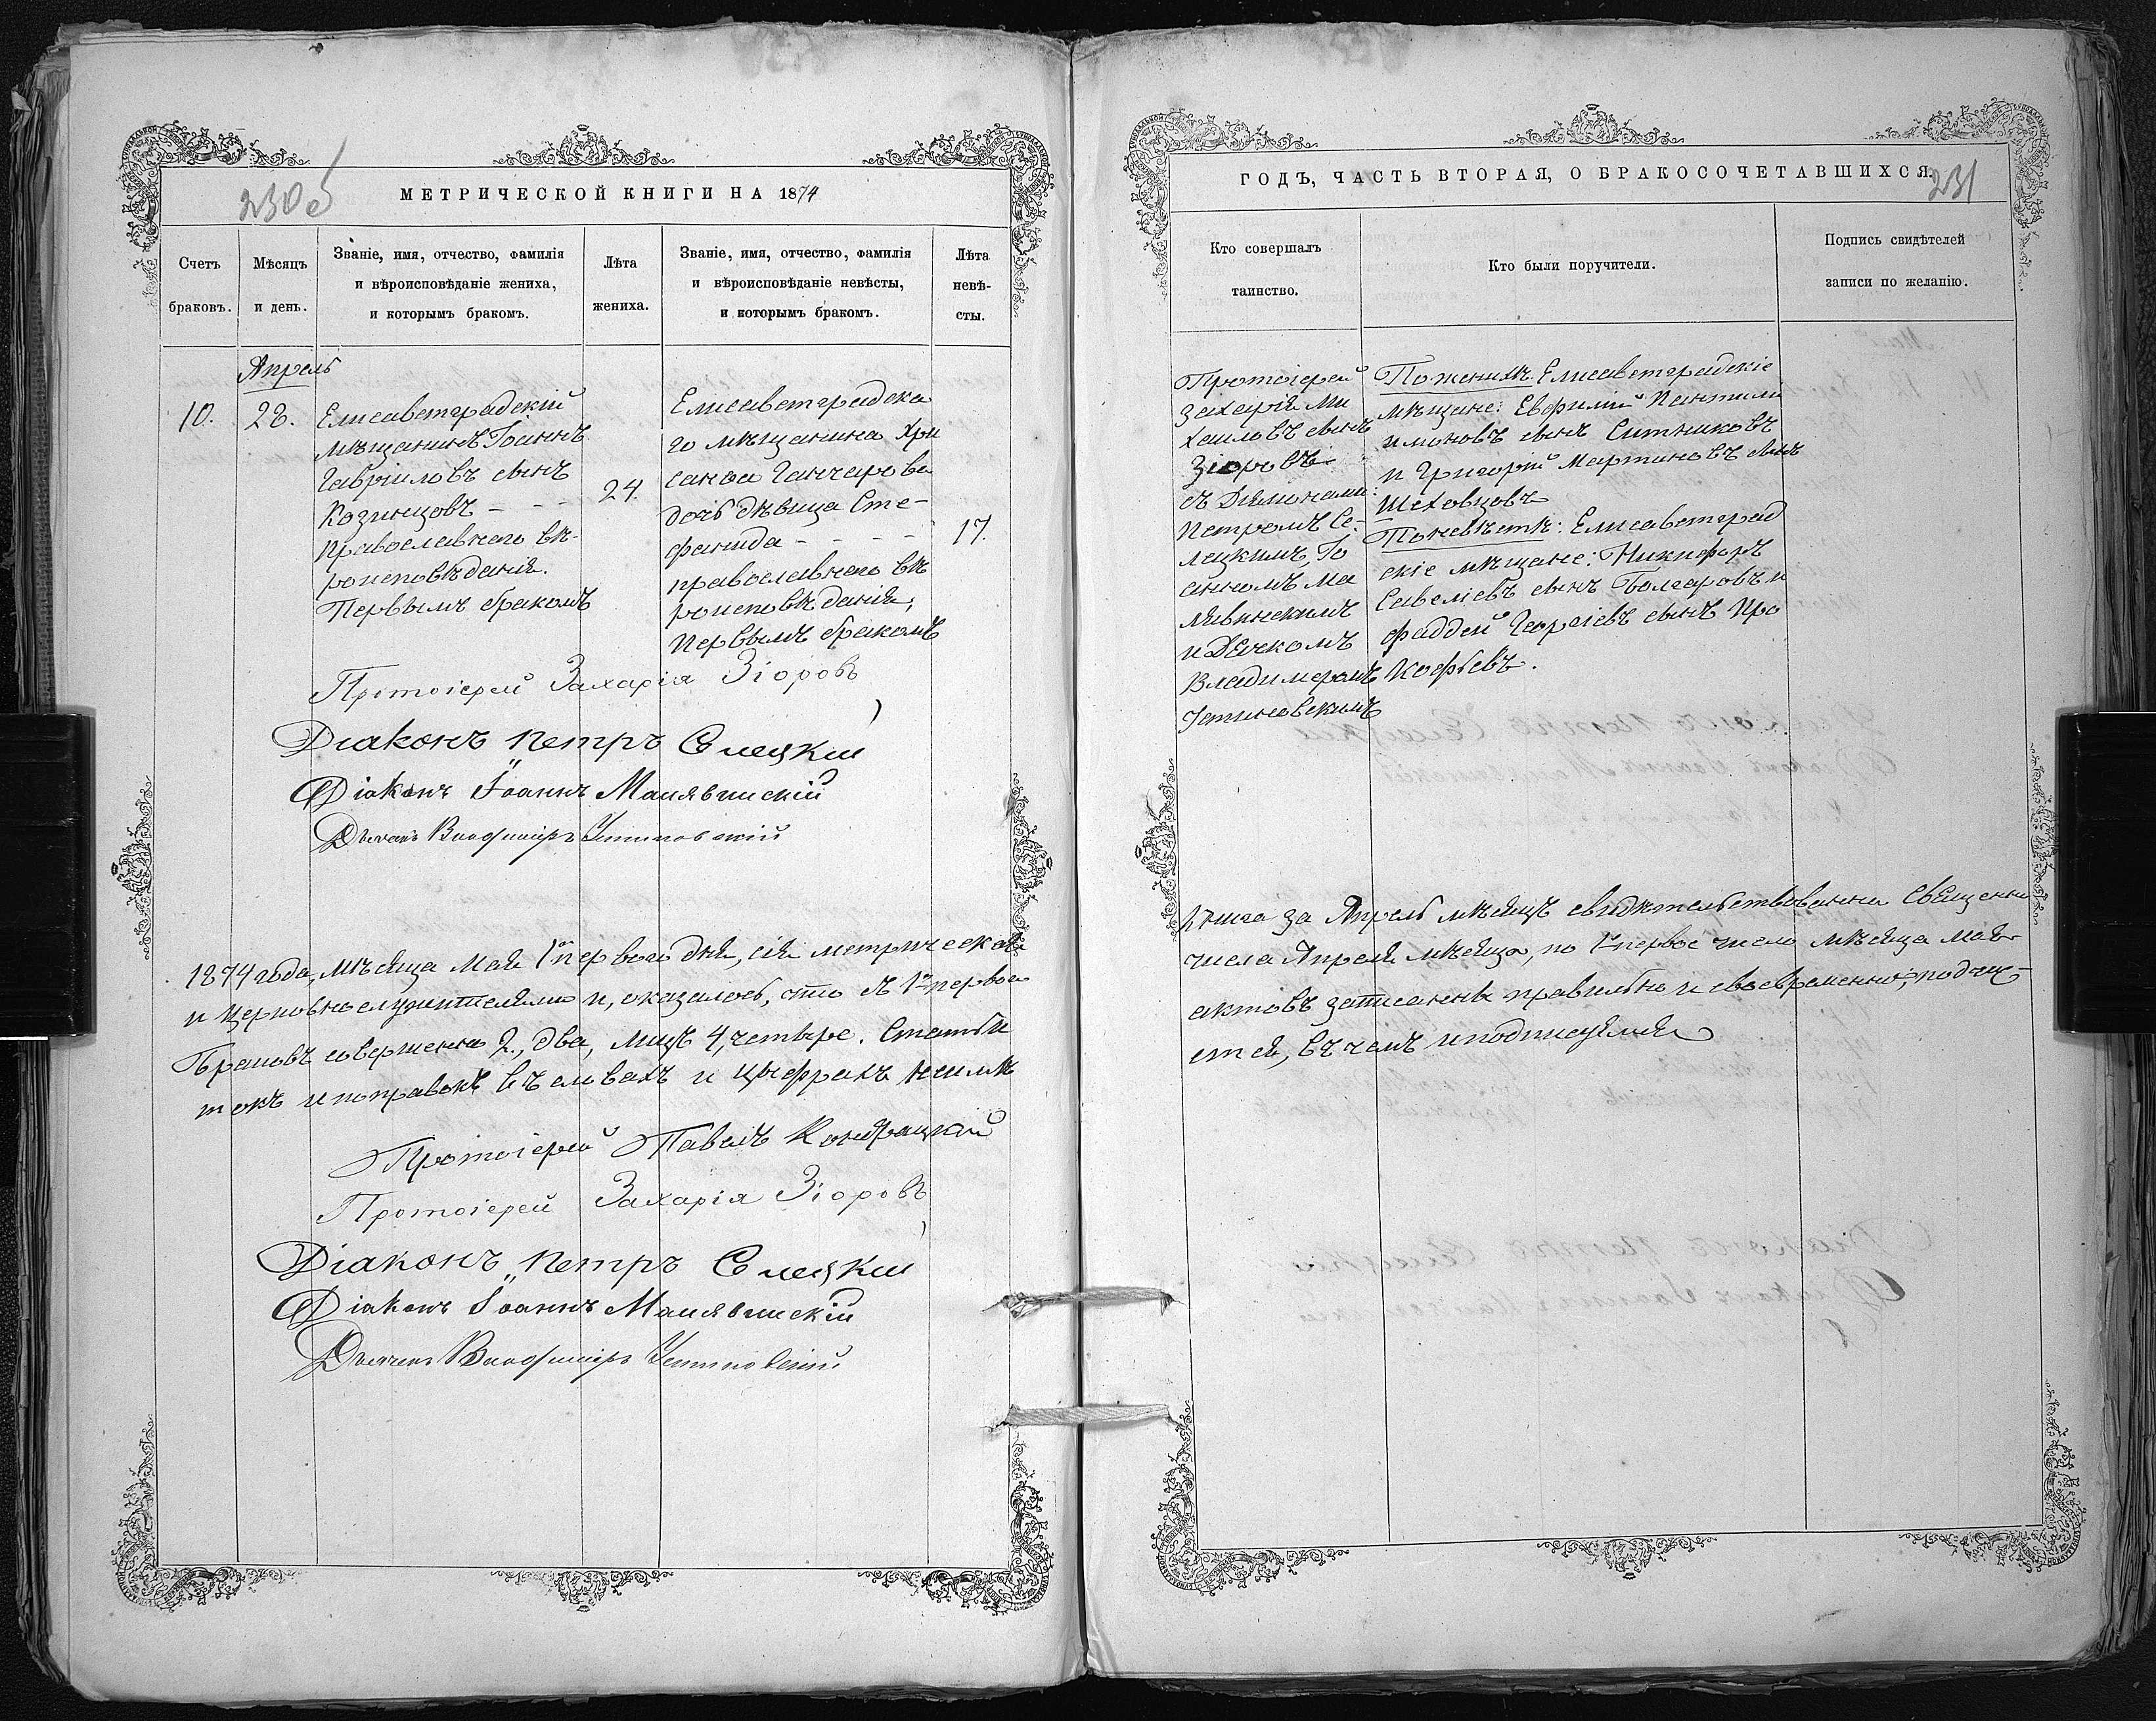 230 об
МЕТРИЧЕСКОЙ КНИГИ НА 1874
Счетъ
браковъ.
Мѣсяцъ
и день.
Званіе, имя, отчество, фамилія
и вѣроисповѣданіе жениха,
и которымъ бракомъ.
Лѣта
жениха.
Званіе, имя, отчество, фамилія
и вѣроисповѣданіе невѣсты,
и которымъ бракомъ.
Лѣта
невѣ-
сты.
Апрель
10.
28.
Елисаветградскій
мѣщанинъ Іоаннъ
Гавріиловъ сынъ
Козинцовъ - - -
православнаго вѣ-
роисповѣданія.
Первымъ бракомъ
24.
Елисаветградска
го мѣщанина Хри
санфа Ганчарова
дочь дѣвица Сте-
фанида - - - -
православнаго вѣ
роисповѣданія,
первымъ бракомъ
17.
Протоіерей Захарія Зіоровъ
Діаконъ Петръ Селецкій
Діаконъ Іоаннъ Манявинскій
Дьячекъ Владиміръ Устиновскій
1874 года, мѣсяца Мая 1го перваго дня, сія метрическая
и церковнослужителями и, оказалось, что съ 1го перваго
Браковъ совершенно 2., два, лицъ 4, четыре. Статьи
токъ и поправокъ въ словахъ и цыфрахъ неимѣ
Протоіерей Павелъ Кондрацкій
Протоіерей Захарія Зіоровъ
Діаконъ Петръ Селецкій
Діаконъ Іоаннъ Манявинскій
Дьячекъ Владиміръ Устиновскій
231
ГОДЪ, ЧАСТЬ ВТОРАЯ, О БРАКОСОЧЕТАВШИХСЯ.
Кто совершалъ
таинство.
Кто были поручители.
Подпись свидѣтелей
записи по желанію.
Протоіерей
Захарія Ми
хаиловъ сынъ
Зіоровъ
съ Діаконами:
Петромъ Се-
лецкимъ, Іо
анномъ Ма
нявинскимъ
и Дячкомъ
Владимеромъ
Устиновскимъ
По женихѣ: Елисаветградскіе
мѣщане: Евфимій Пантили
имоновъ сынъ Ситниковъ
и Григорій Мартиновъ сынъ
Шеховцовъ
По невѣстѣ: Елисаветград
скіе мѣщане: Никифоръ
Савеліевъ сынъ Болгаровъ и
Фаддей Георгіевъ сынъ Про
кофьевъ.
книга за Апрель мѣсяцъ свидѣтельствованна Священно
числа Апреля мѣсяца, по 1е первое число мѣсяца Мая
актовъ записанны правильно и своевременно, подчис-
ется, въ чемъ и подписуемся